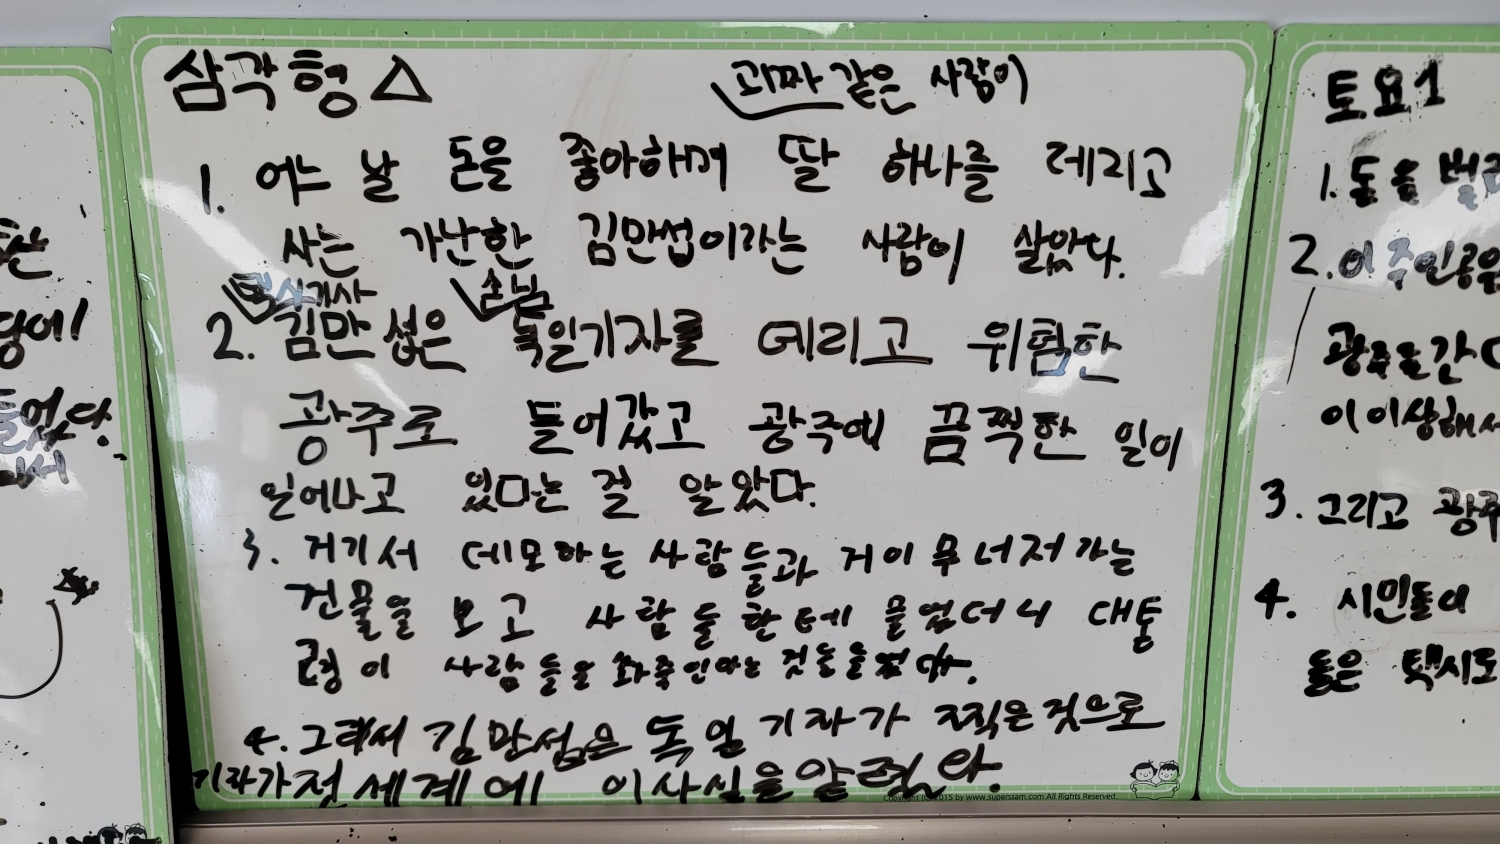 삼각형 △
괴짜 같은 사람이
1. 어느 날 돈을 좋아하며 딸 하나를 데리고
사는 가난한 김만섭이라는 사람이 살았다.
택시기사 손님
2. 김만섭은 독일기자를 데리고 위험한
광주로 들어갔고 광주에 끔찍한 일이
일어나고 있다는 걸 알았다.
3. 거기서 데모하는 사람들과 거이 무너저가는
건물을 보고 사람들한테 물었더니 대통
령이 사람들을 죽인다는 것을 들었다.
4. 그래서 김만섭은 독일 기자가 찍은것으로
기자가 전 세계에 이사실을 알렸다.
Copyright (C) 2015 by www.superssam.com All Rights Reserved.
토요1
1. 돈을
2. 이 주인공은
광주을 간
이 이상해서
3. 그리고 광주
4. 시민들이
들은 택시도